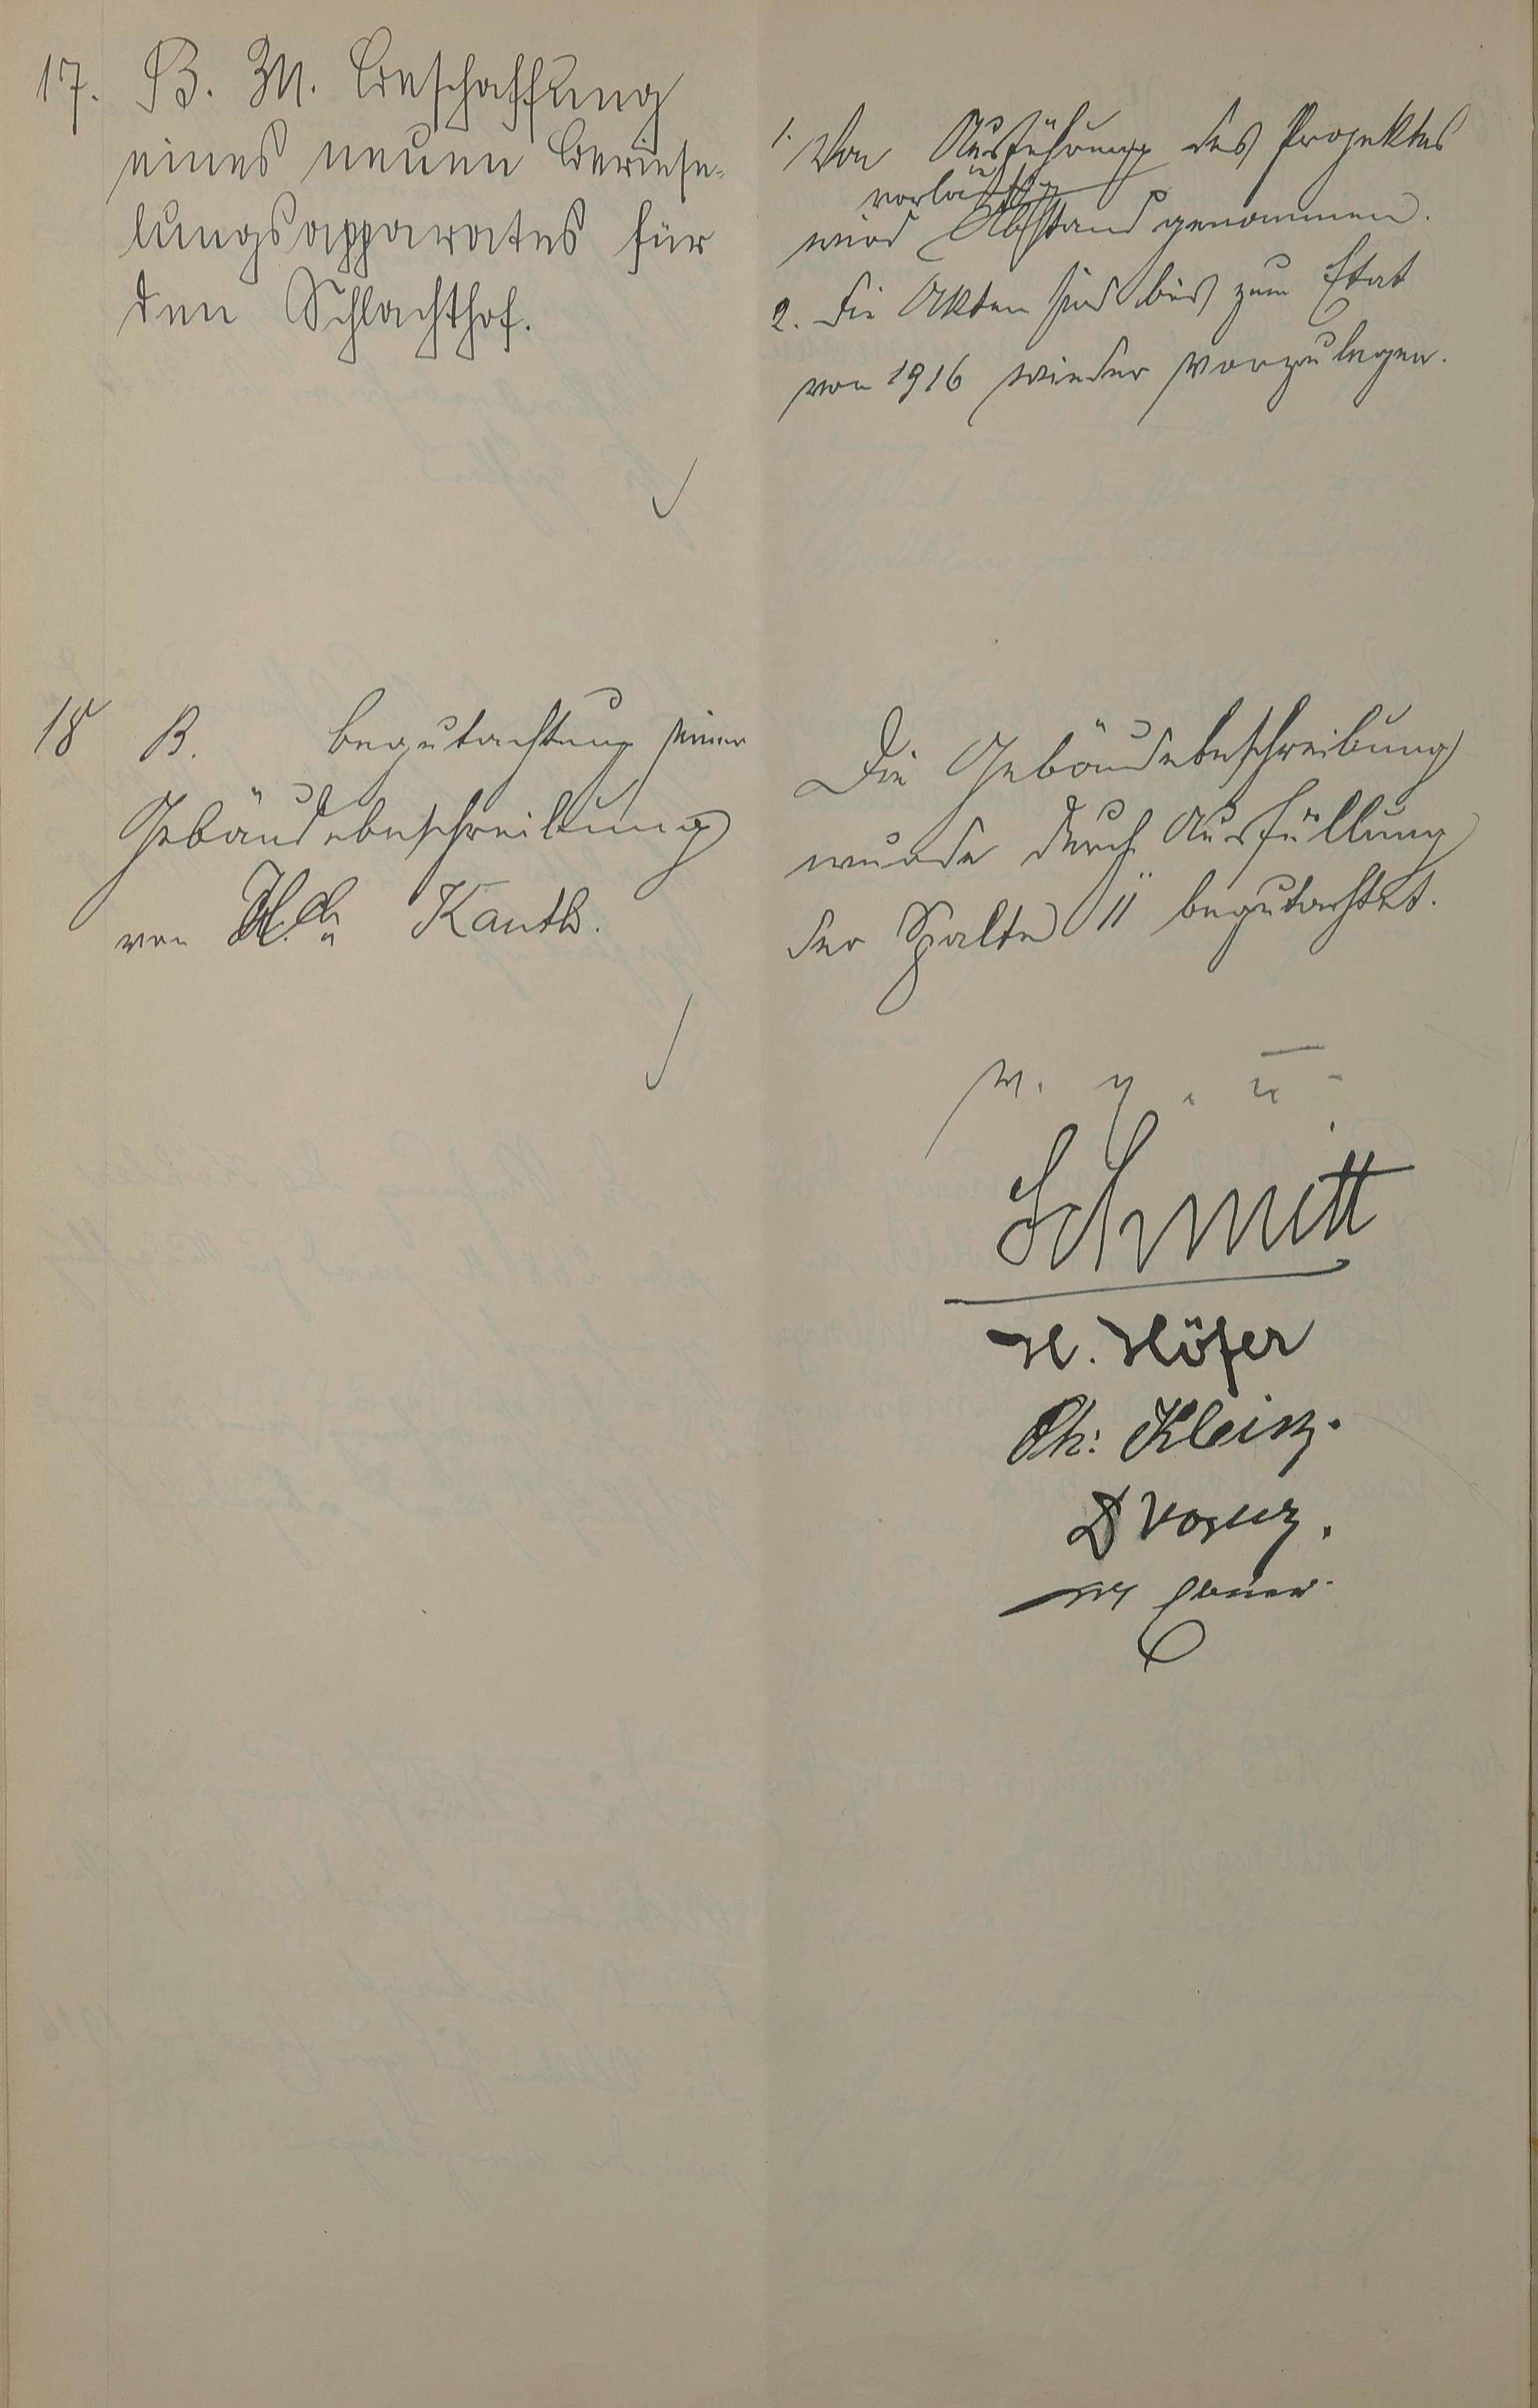 17. B. M. Beschaffung
eines neuen Beriese-
lungsapparates für
den Schlachthof.
1. Von Ausführung des Projektes
vorläufig
wird Abstand genommen.
2. Die Akten sind bis zum Etat
von 1916 wieder vorzulegen.
18 B. Begutachtung einer
Gebäudebeschreibung
von Kauth.
Die Gebäudebeschreibung
wurde durch Ausfüllung
der Spalte 11 begutachtet.
v. g. u.
Schmitt
H. Höfer
Ph: Klein.